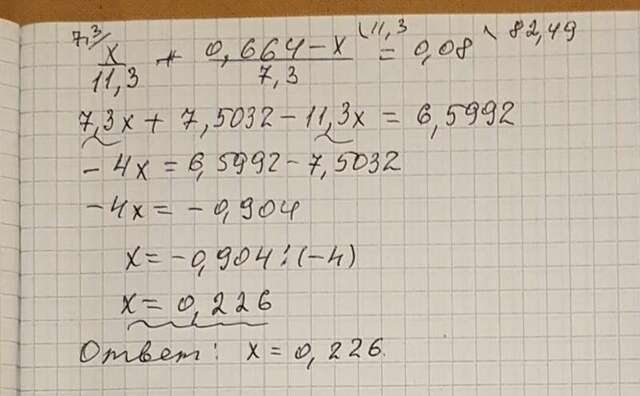 7,3/ x/11,3 + (0,664-x)/7,3 \11,3 = 0,08 \82,49
7,3x + 7,5032 - 11,3x = 6,5992
-4x = 6,5992 - 7,5032
-4x = -0,904
x = -0,904 : (-4)
x = 0,226
Ответ: x = 0,226.